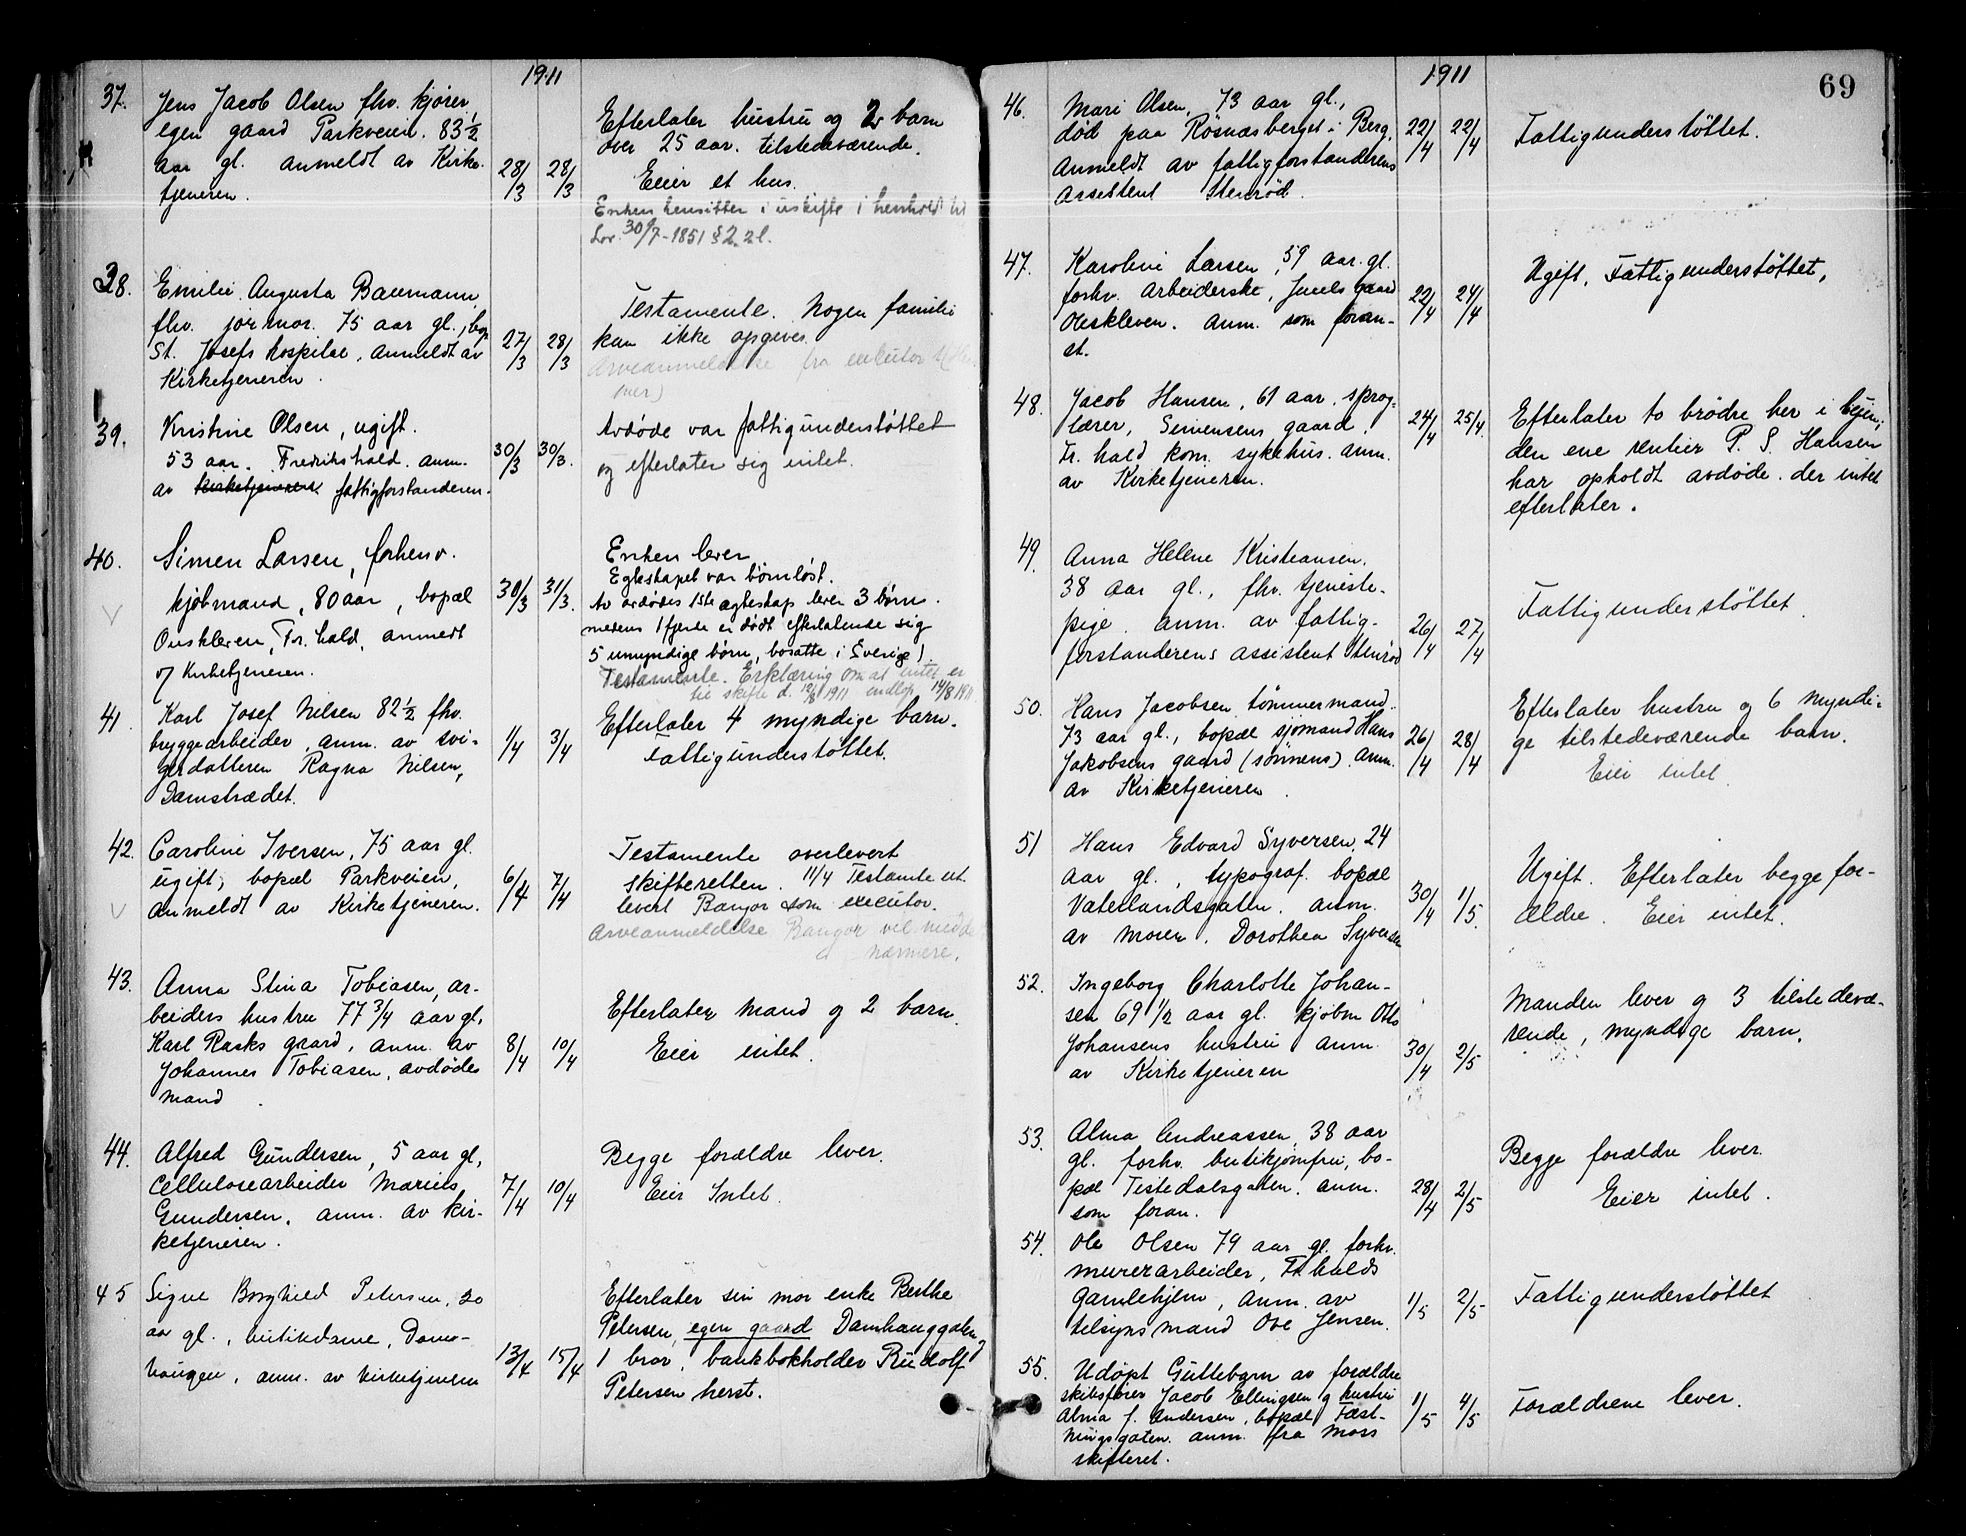 1911
37. Jens Jacob Olsen fhv. kjører,
egen gaard Parkveien. 83 1/2
aar gl. anmeldt av Kirke-
tjeneren. 28/3 28/3
Efterlater hustru og 2 barn
over 25 aar. tilstedeværende.
Eier et hus.
Enken hensitter i uskifte i henhold til
Lov. 30/7-1851 § 2. 2 l.
38. Emilie Augusta Baumann,
fhv. jormor. 75 aar gl., bop.
St. Josefs hospital, anmeldt av
Kirketjeneren. 27/3 28/3
Testamente. Nogen familie
kan ikke opgives.
Arveanmeldelse fra executor
39. Kristine Olsen, ugift.
53 aar. Fredrikshald. anm.
av Kirketjeneren fattigforstanderen. 30/3 30/3.
Avdøde var fattigunderstøttet
og efterlater sig intet.
40. Simen Larsen, forhenv.
kjøbmand, 80 aar, bopæl
Ouskleven, Fr. hald, anmeldt
af Kirketjeneren. 30/3 31/3.
Enken lever
Egteskapet var børnløst.
Av avdødes 1ste ægteskap lever 3 børn.
medens 1 fjerde er dødt efterlatende sig
5 umyndige børn, bosatte i Sverige!
Testamente. Erklæring om at intet er
til skifte d. 12/8 1911 indlop. 14/8 1911
41. Karl Josef Nilsen 82 1/2 fhv.
bryggearbeider, anm. av svi-
gerdatteren Ragna Nilsen,
Damstrædet. 1/4 3/4
Efterlater 4 myndige barn.
Fattigunderstøttet.
42. Caroline Iversen, 75 aar gl.
ugift, bopæl Parkveien,
anmeldt av Kirketjeneren. 6/4 7/4
Testamente overlevert
skifteretten. 11/4 Testamte ut
levert Bangor som executor.
Arveanmeldelse Bangor vil indde
nærmere.
43. Anna Stina Tobiasen, ar-
beiders hustru 77 3/4 aar gl.
Karl Rasks gaard, anm. av
Johannes Tobiasen, avdødes
mand. 8/4 10/4
Efterlater mand og 2 barn.
Eier intet.
44. Alfred Gundersen, 5 aar gl,
Cellulosearbeider Marius
Gundersen, anm. av kir-
ketjeneren. 7/4 10/4
Begge forældre lever.
Eier Intet.
45 Signe Borghild Petersen, 20
aar gl., butikdame, Dam-
haugen, anm. av kirketjeneren 13/4 15/4
Efterlater sin mor enke Berthe
Petersen, egen gaard Damhauggaten,
1 bror, bankbokholder Rudolf
Petersen herst.
1911
69
46. Mari Olsen, 73 aar gl.,
død paa Røsnæsberget i Berg.
Anmeldt av fattigforstanderens
assistent Stenrød. 22/4 22/4
Fattigunderstøttet.
47. Karoline Larsen, 59 aar. gl.
forhv. Arbeiderske, Juels gaard
Oreskleven. anm. som foran-
st. 22/4 24/4
Ugift, Fattigunderstøttet,
48. Jacob Hansen, 61 aar, sprog-
lærer, Simensens gaard.
Fr. hald kom. sykehus. anm.
av Kirketjeneren. 24/4 25/4.
Efterlater to brødre her i byen;
den ene rentier P. S. Hansen
har opholdt avdøde. der intet
efterlater.
49. Anna Helene Kristiansen.
38 aar gl., fhv. tjeneste-
pige. anm. av fattig-
forstanderens assistent Stenrød 26/4 27/4
Fattigunderstøttet.
50. Hans Jacobsen tømmermand.
73 aar gl., bopæl sjømand Hans
Jakobsens gaard (sønnens). anm.
av Kirketjeneren. 26/4 28/4
Efterlater hustru og 6 myndi-
ge tilstedeværende barn.
Eier intet
51 Hans Edvard Syversen, 24
aar gl., typograf. bopæl
Vaterlandsgaten. anm.
av moren, Dorothea Syversen 30/4 1/5.
Ugift. Efterlater begge for-
ældre. Eier intet.
52. Ingeborg Charlotte Johan-
sen 69 1/2 aar gl. kjøbm Otto
Johansens hustru anm.
av Kirketjeneren 30/4 2/5
Manden lever og 3 tilstedevæ-
rende, myndige barn.
53. Alma Andreassen, 38 aar
gl. forhv. butikjomfru, bo-
pæl Tistedalsgaten. anm.
som foran. 28/4 2/5
Begge forældre lever.
Eier intet.
54. Ole Olsen 79 aar gl. forhv.
murerarbeider, Fr halds
Gamlehjem, anm. av
tilsynsmand Ove Jensen. 1/5 2/5
Fattigunderstøttet
55. Udøpt Guttebarn av forældre
skibsfører Jacob Ellingsen og hustru
Alma f. Andersen, bopæl Fæst-
ningsgaten. anm. fra Moss
skifteret. 1/5 4/5
Forældrene lever.